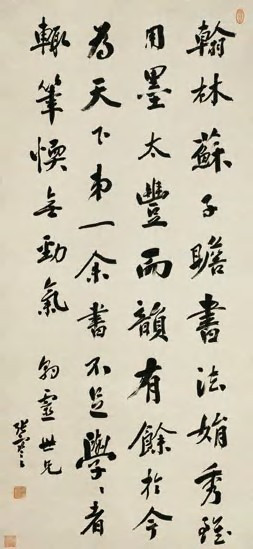 翰林蘇子瞻書法娟秀雖
用墨太豐而韻有餘於今
為天下第一余書不足學學者
輒筆愞無勁氣
世兄
張謇